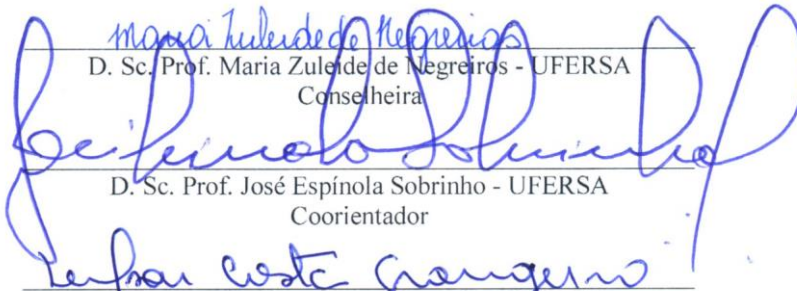 Maria Zuleide de Negreiros
D. Sc. Prof. Maria Zuleide de Negreiros - UFERSA
Conselheira
D. Sc. Prof. José Espínola Sobrinho - UFERSA
Coorientador
Costa Grangeiro